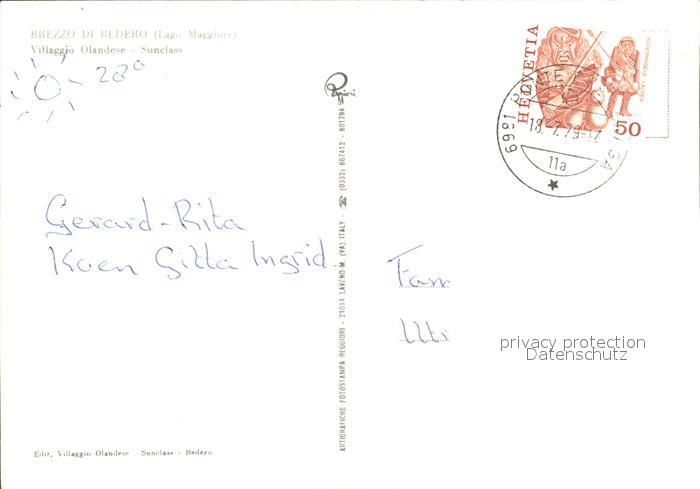 BREZZO DI BEDERO (Lago Maggiore)
Villaggio Olandese - Sunclass
28°
Gerard-Rita
Koen Gitta Ingrid.
Edit, Villaggio Olandese Sunclass - Bedero
ARTIGRAFICHE FOTOSTAMPA REGGIORI - 21014 LAVENO-M. (VA) ITALY - ☎ (0332) 667412 - 601794
HELVETIA
50
6981
18.-7.79-17
11a
Fam
privacy protection
Datenschutz